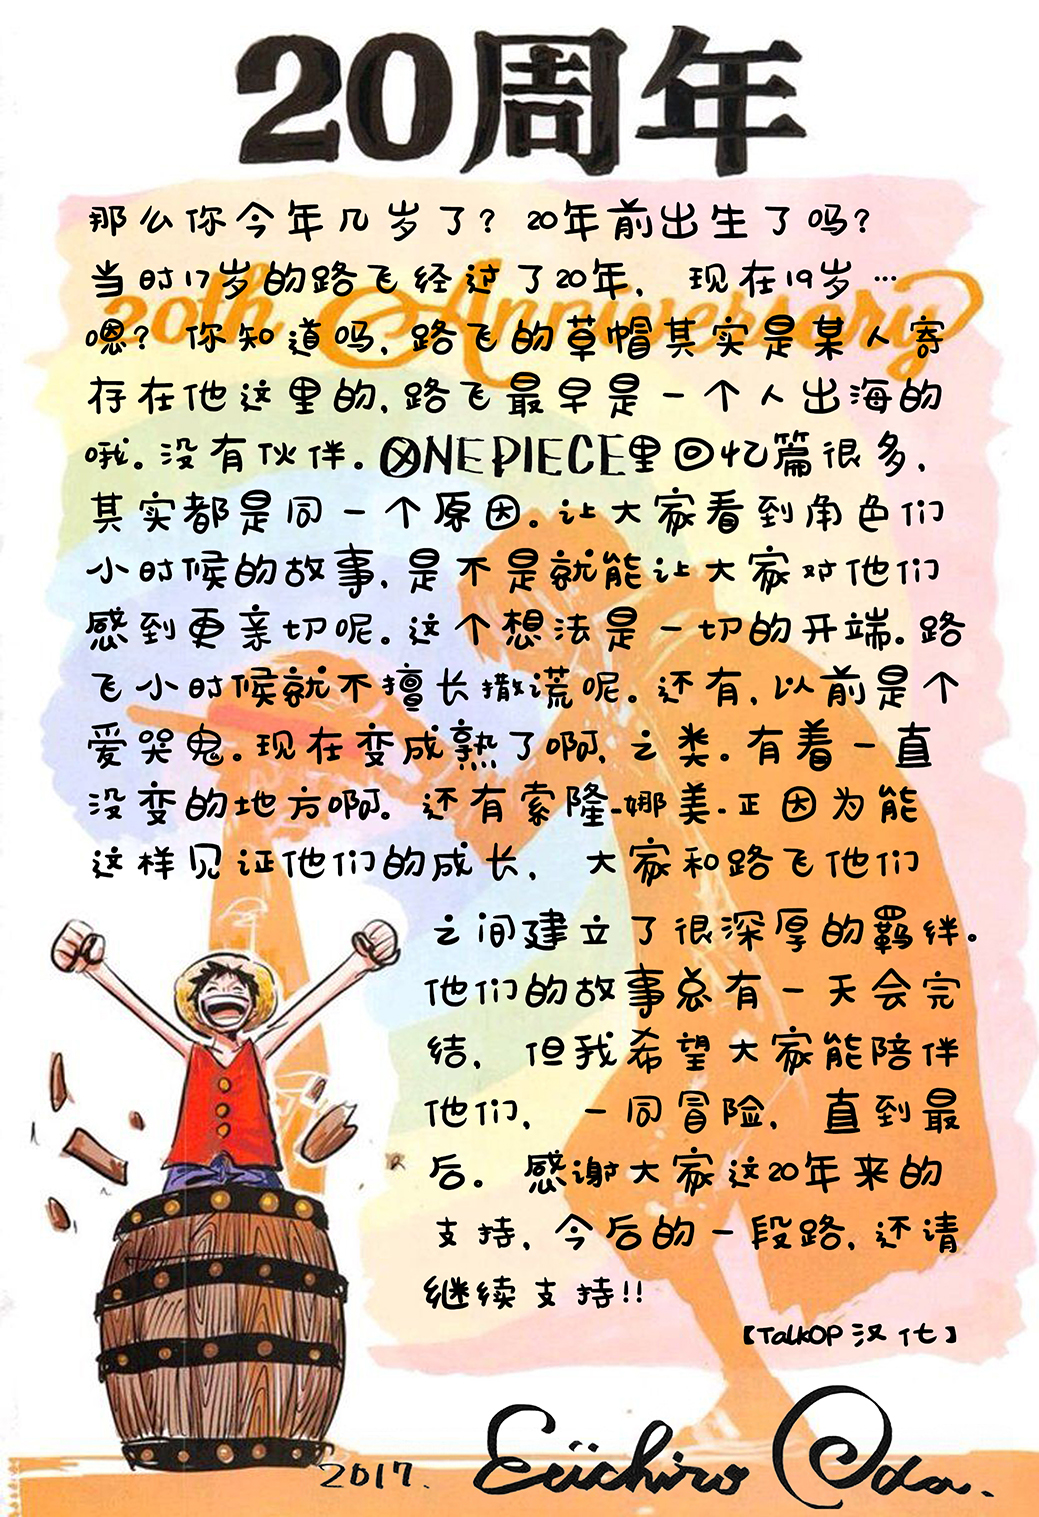 20周年
20th Anniversary
那么你今年几岁了？20年前出生了吗？
当时17岁的路飞经过了20年，现在19岁…
嗯？你知道吗，路飞的草帽其实是某人寄
存在他这里的，路飞最早是一个人出海的
哦。没有伙伴。ONE PIECE里回忆篇很多，
其实都是同一个原因。让大家看到角色们
小时候的故事，是不是就能让大家对他们
感到更亲切呢。这个想法是一切的开端。路
飞小时候就不擅长撒谎呢。还有，以前是个
爱哭鬼。现在变成熟了啊，之类。有着一直
没变的地方啊。还有索隆-娜美-正因为能
这样见证他们的成长，大家和路飞他们
之间建立了很深厚的羁绊。
他们的故事总有一天会完
结，但我希望大家能陪伴
他们，一同冒险，直到最
后。感谢大家这20年来的
支持，今后的一段路，还请
继续支持!!
【TalkOP汉化】
2017.
Eiichiro Oda.